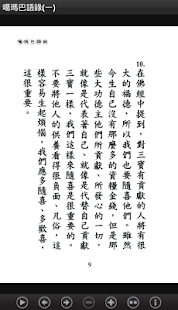 噶瑪巴語錄(一)
噶瑪巴語錄
10.
在佛經中提到,對三寶有貢獻的人將有很
大的福德,所以我們也要隨喜他們。雖然
今生自己沒有那麼多的資糧金錢,但是那
些大功德主他們所貢獻、所發心的一切,
就像是代表著自己,就像是代替自己貢獻
三寶一樣,我們這樣來隨喜是很重要的。
不要將他人的供養看得很負面、凡俗,這
樣容易生起煩惱,我們應多隨喜、多歡喜,
這很重要。
9